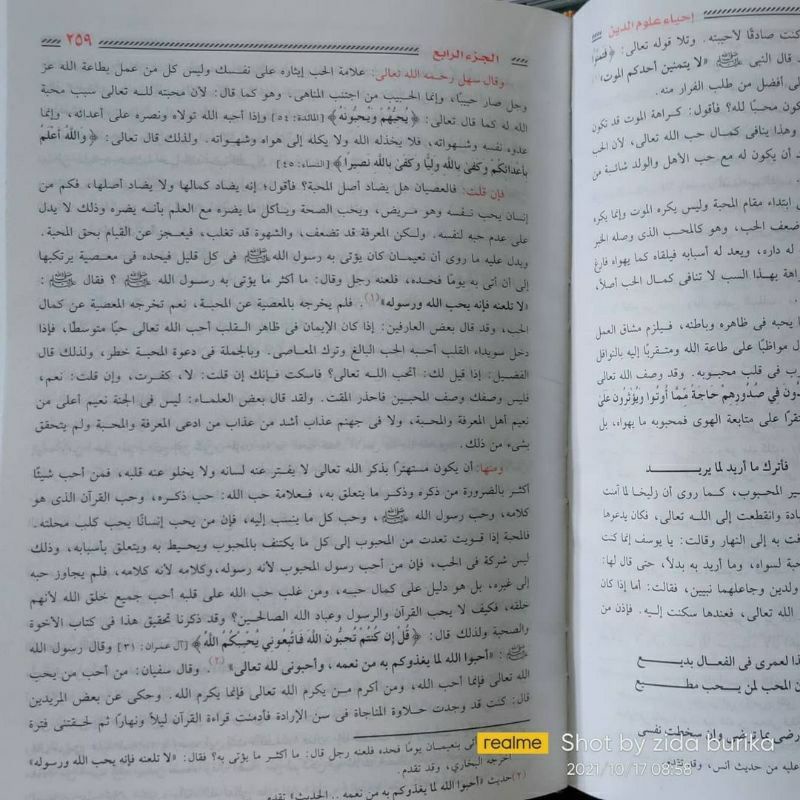 إحياء علوم الدين
كنت صادقًا لأحببته. وتلا قوله تعالى: ﴿فتمنوا
قال النبى ﷺ «لا يتمنين أحدكم الموت»
أفضل من طلب الفرار منه.
محبًا لله؟ فأقول: كراهة الموت قد تكون
وهذا ينافى كمال حب الله تعالى، لأن الحب
أن يكون له مع حب الأهل والولد شائبة من
ابتداء مقام المحبة وليس يكره الموت وإنما يكره
ضعف الحب، وهو كالمحب الذى وصله الخبر
له داره، ويعد له أسبابه فيلقاه كما يهواه فارغ
بهذا السبب لا تنافى كمال الحب أصلاً،
يحبه فى ظاهره وباطنه، فيلزم مشاق العمل
مواظبًا على طاعة الله ومتقربًا إليه بالنوافل
فى قلب محبوبه. وقد وصف الله تعالى
فِي صُدُورِهِمْ حَاجَةً مِّمَّا أُوتُوا وَيُؤْثِرُونَ عَلَى
على متابعة الهوى فمحبوبه ما يهواه، بل
فأترك ما أريد لما يريد
المحبوب، كما روى أن زليخا لما آمنت
وانقطعت إلى الله تعالى، فكان يدعوها
به إلى النهار وقالت: يا يوسف إنما كنت
لسواه، وما أريد به بدلاً، حتى قال لها:
ولدين وجاعلهما نبيين، فقالت: أما إذا كان
الله تعالى، فعندها سكنت إليه. فإذن من
لعمرى فى الفعال بديع
المحب لمن يحب مطيع
وإن سخطت نفسى
عليه من حديث أنس، وقد تقدم
الجزء الرابع
٢٥٩
وقال سهل رحمه الله تعالى: علامة الحب إيثاره على نفسك وليس كل من عمل بطاعة الله عز
وجل صار حبيبًا، وإنما الحبيب من اجتنب المناهى. وهو كما قال: لأن محبته لله تعالى سبب محبة
الله له كما قال تعالى: ﴿يُحِبُّهُمْ وَيُحِبُّونَهُ﴾ [المائدة: ٥٤] وإذا أحبه الله تولاه ونصره على أعدائه، وإنما
عدوه نفسه وشهواته، فلا يخذله الله ولا يكله إلى هواه وشهواته. ولذلك قال تعالى: ﴿وَاللَّهُ أَعْلَمُ
بِأَعْدَائِكُمْ وَكَفَىٰ بِاللَّهِ وَلِيًّا وَكَفَىٰ بِاللَّهِ نَصِيرًا﴾ [النساء: ٤٥]
فإن قلت: فالعصيان هل يضاد أصل المحبة؟ فأقول: إنه يضاد كمالها ولا يضاد أصلها، فكم من
إنسان يحب نفسه وهو مريض، ويحب الصحة ويأكل ما يضره مع العلم بأنه يضره وذلك لا يدل
على عدم حبه لنفسه. ولكن المعرفة قد تضعف، والشهوة قد تغلب، فيعجز عن القيام بحق المحبة.
ويدل عليه ما روى أن نعيمان كان يؤتى به رسول الله ﷺ فى كل قليل فيحده فى معصية يرتكبها
إلى أن أتى به يومًا فحده، فلعنه رجل وقال: ما أكثر ما يؤتى به رسول الله ﷺ ؟ فقال ﷺ :
«لا تلعنه فإنه يحب الله ورسوله»(١). فلم يخرجه بالمعصية عن المحبة، نعم تخرجه المعصية عن كمال
الحب، وقد قال بعض العارفين: إذا كان الإيمان فى ظاهر القلب أحب الله تعالى حبًا متوسطًا، فإذا
دخل سويداء القلب أحبه الحب البالغ وترك المعاصى. وبالجملة فى دعوة المحبة خطر، ولذلك قال
الفضيل: إذا قيل لك: أتحب الله تعالى؟ فاسكت فإنك إن قلت: لا، كفرت، وإن قلت: نعم،
فليس وصفك وصف المحبين فاحذر المقت. ولقد قال بعض العلماء: ليس فى الجنة نعيم أعلى من
نعيم أهل المعرفة والمحبة، ولا فى جهنم عذاب أشد من عذاب من ادعى المعرفة والمحبة ولم يتحقق
بشىء من ذلك.
ومنها: أن يكون مستهترًا بذكر الله تعالى لا يفتر عنه لسانه ولا يخلو عنه قلبه، فمن أحب شيئًا
أكثر بالضرورة من ذكره وذكر ما يتعلق به، فعلامة حب الله: حب ذكره، وحب القرآن الذى هو
كلامه، وحب رسول الله ﷺ، وحب كل ما ينسب إليه، فإن من يحب إنسانًا يحب كلب محلته.
فالمحبة إذا قويت تعدت من المحبوب إلى كل ما يكتنف بالمحبوب ويحيط به ويتعلق بأسبابه، وذلك
ليس شركة فى الحب، فإن من أحب رسول المحبوب لأنه رسوله، وكلامه لأنه كلامه، فلم يجاوز حبه
إلى غيره، بل هو دليل على كمال حبه، ومن غلب حب الله على قلبه أحب جميع خلق الله لأنهم
خلقه، فكيف لا يحب القرآن والرسول وعباد الله الصالحين؟ وقد ذكرنا تحقيق هذا فى كتاب الأخوة
والصحبة ولذلك قال: ﴿قُلْ إِن كُنتُمْ تُحِبُّونَ اللَّهَ فَاتَّبِعُونِي يُحْبِبْكُمُ اللَّهُ﴾ [آل عمران: ٣١] وقال رسول الله
ﷺ: «أحبوا الله لما يغذوكم به من نعمه، وأحبونى لله تعالى»(٢). وقال سفيان: من أحب من يحب
الله تعالى فإنما أحب الله، ومن أكرم من يكرم الله تعالى فإنما يكرم الله. وحكى عن بعض المريدين
قال: كنت قد وجدت حلاوة المناجاة فى سن الإرادة فأدمنت قراءة القرآن ليلاً ونهارًا ثم لحقتنى فترة
بنعيمان يومًا فحده فلعنه رجل قال: ما أكثر ما يؤتى به؟ فقال: «لا تلعنه فإنه يحب الله ورسوله»
أخرجه البخارى، وقد تقدم.
(٢) حديث «أحبوا الله لما يغذوكم به من نعمه .. الحديث» تقدم.
realme Shot by zida burika
2021/10/17 08:58